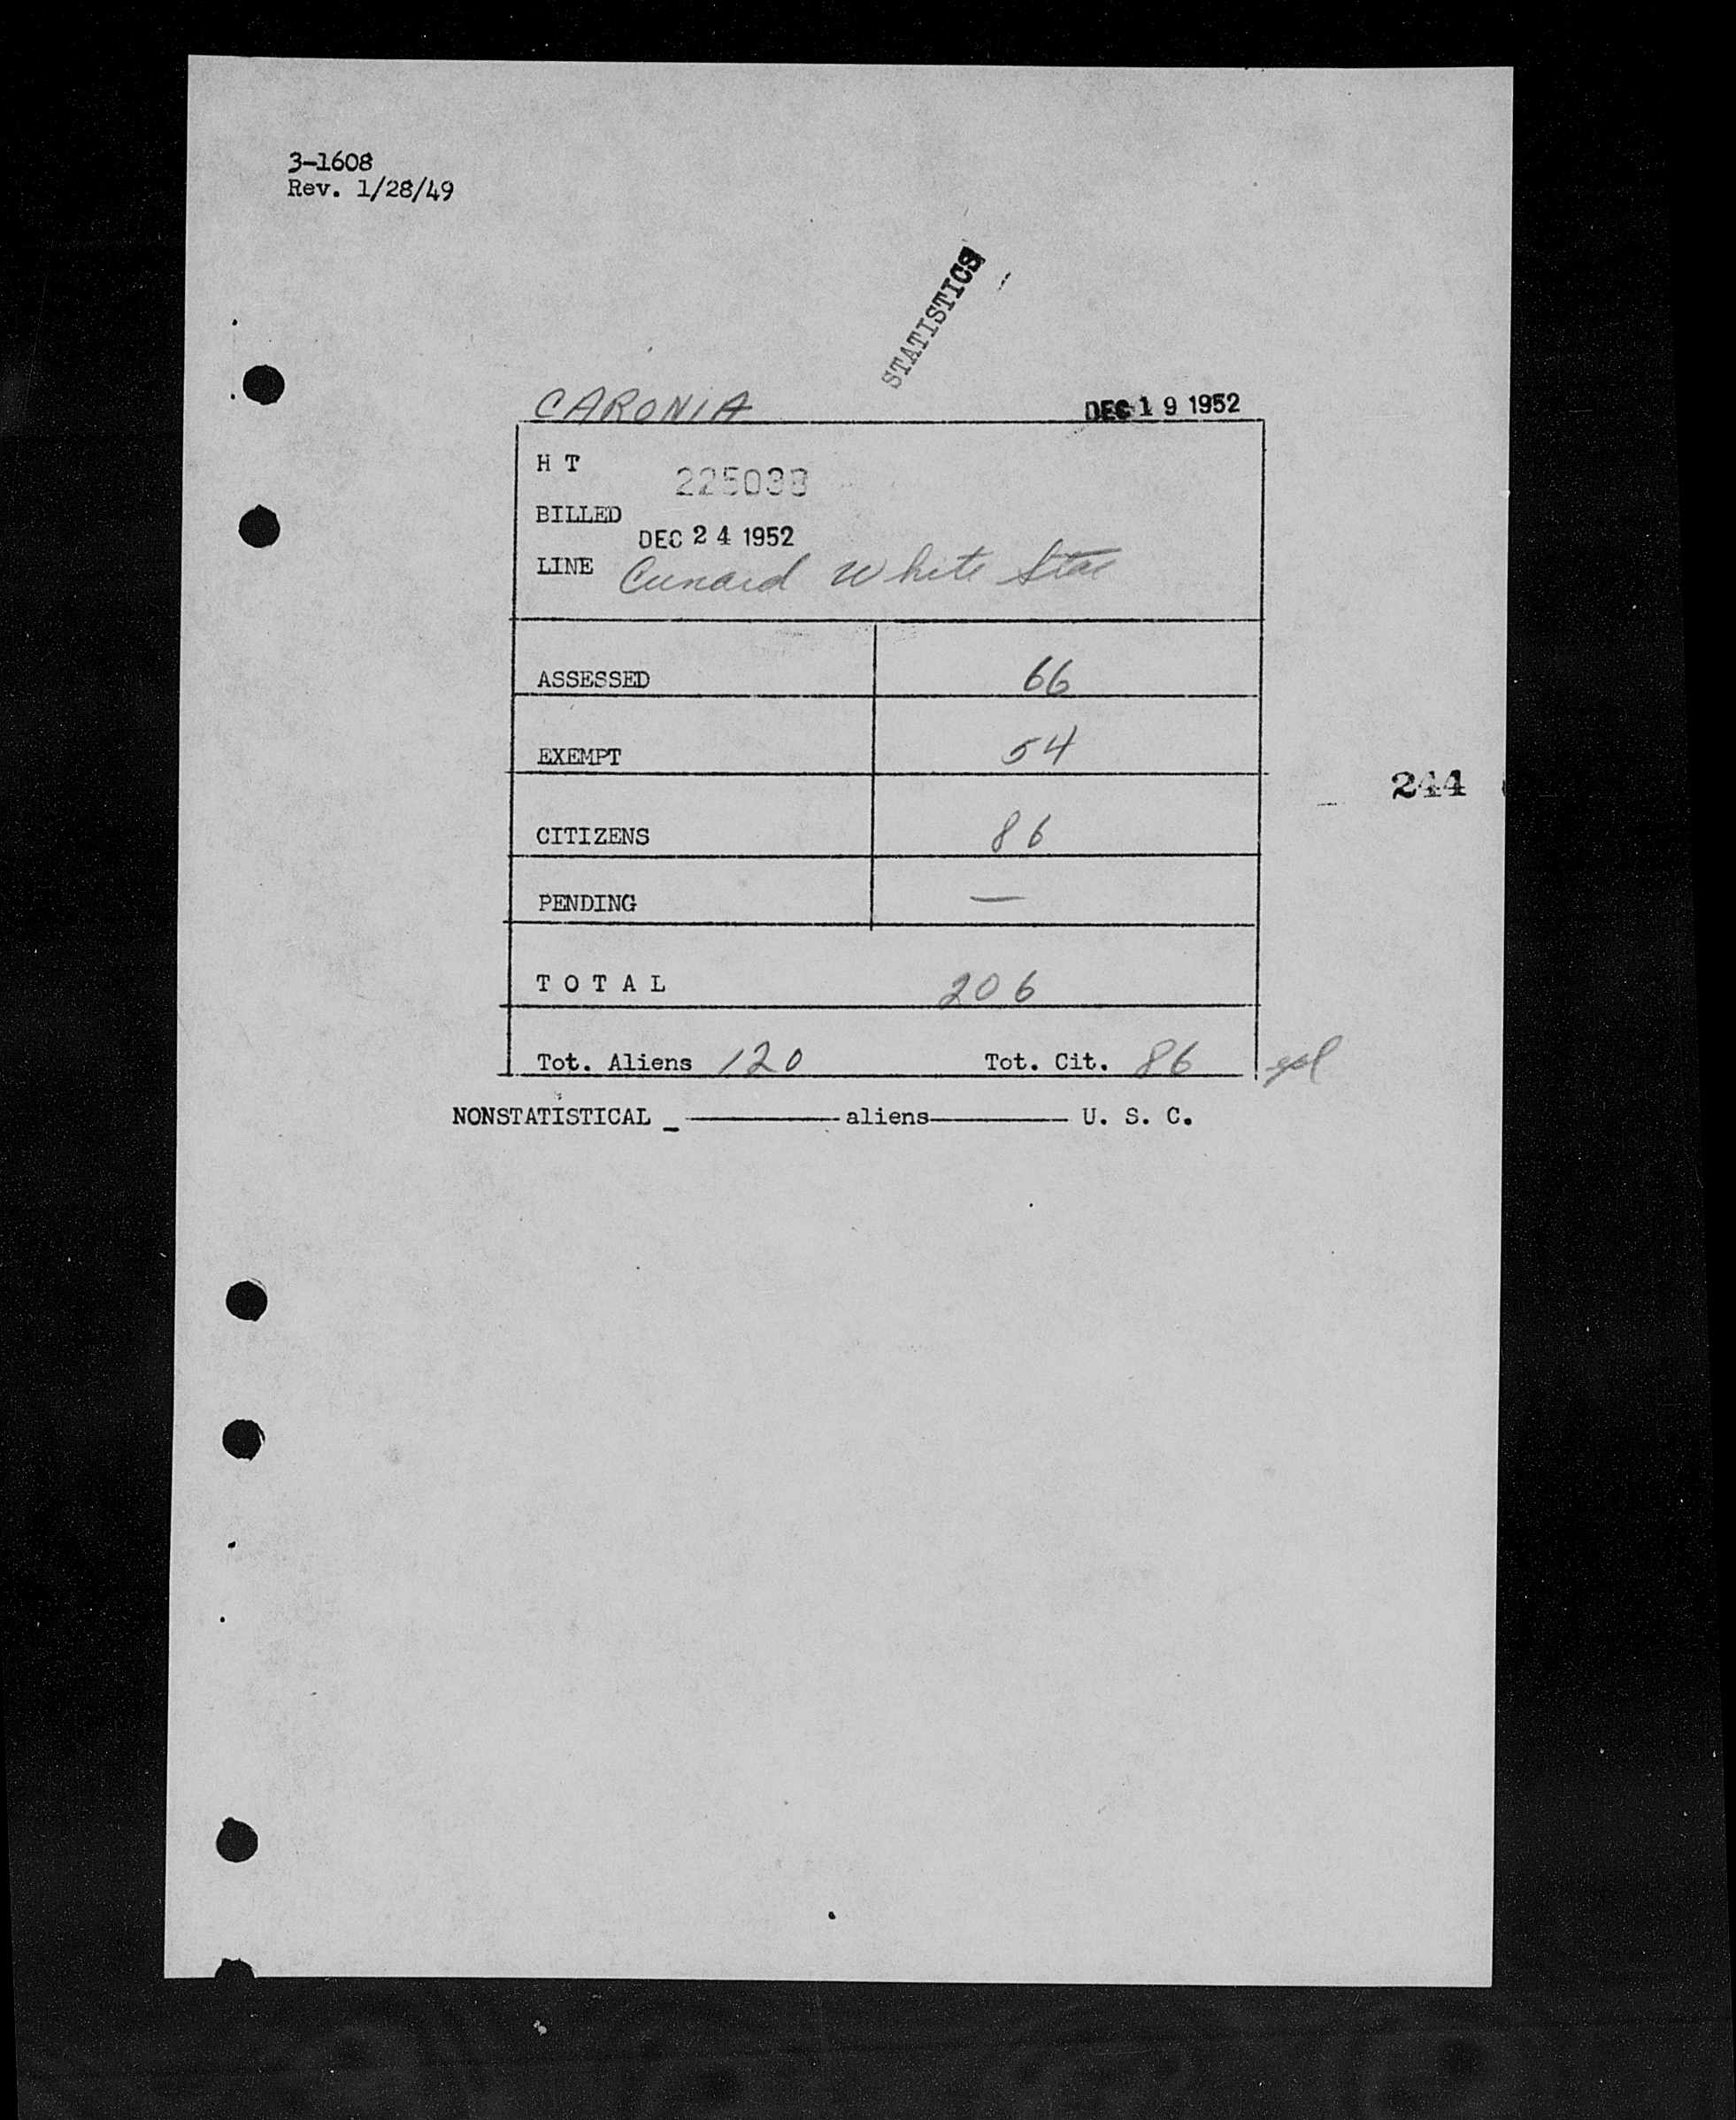 3-1608
Rev. 1/28/49
STATISTICS
CARONIA DEC 19 1952
H T 225038
BILLED
DEC 24 1952
LINE Cunard White Star
ASSESSED 66
EXEMPT 54
244
CITIZENS 86
PENDING —
T O T A L 206
Tot. Aliens 120 Tot. Cit. 86
NONSTATISTICAL _ ———— aliens ———— U. S. C.